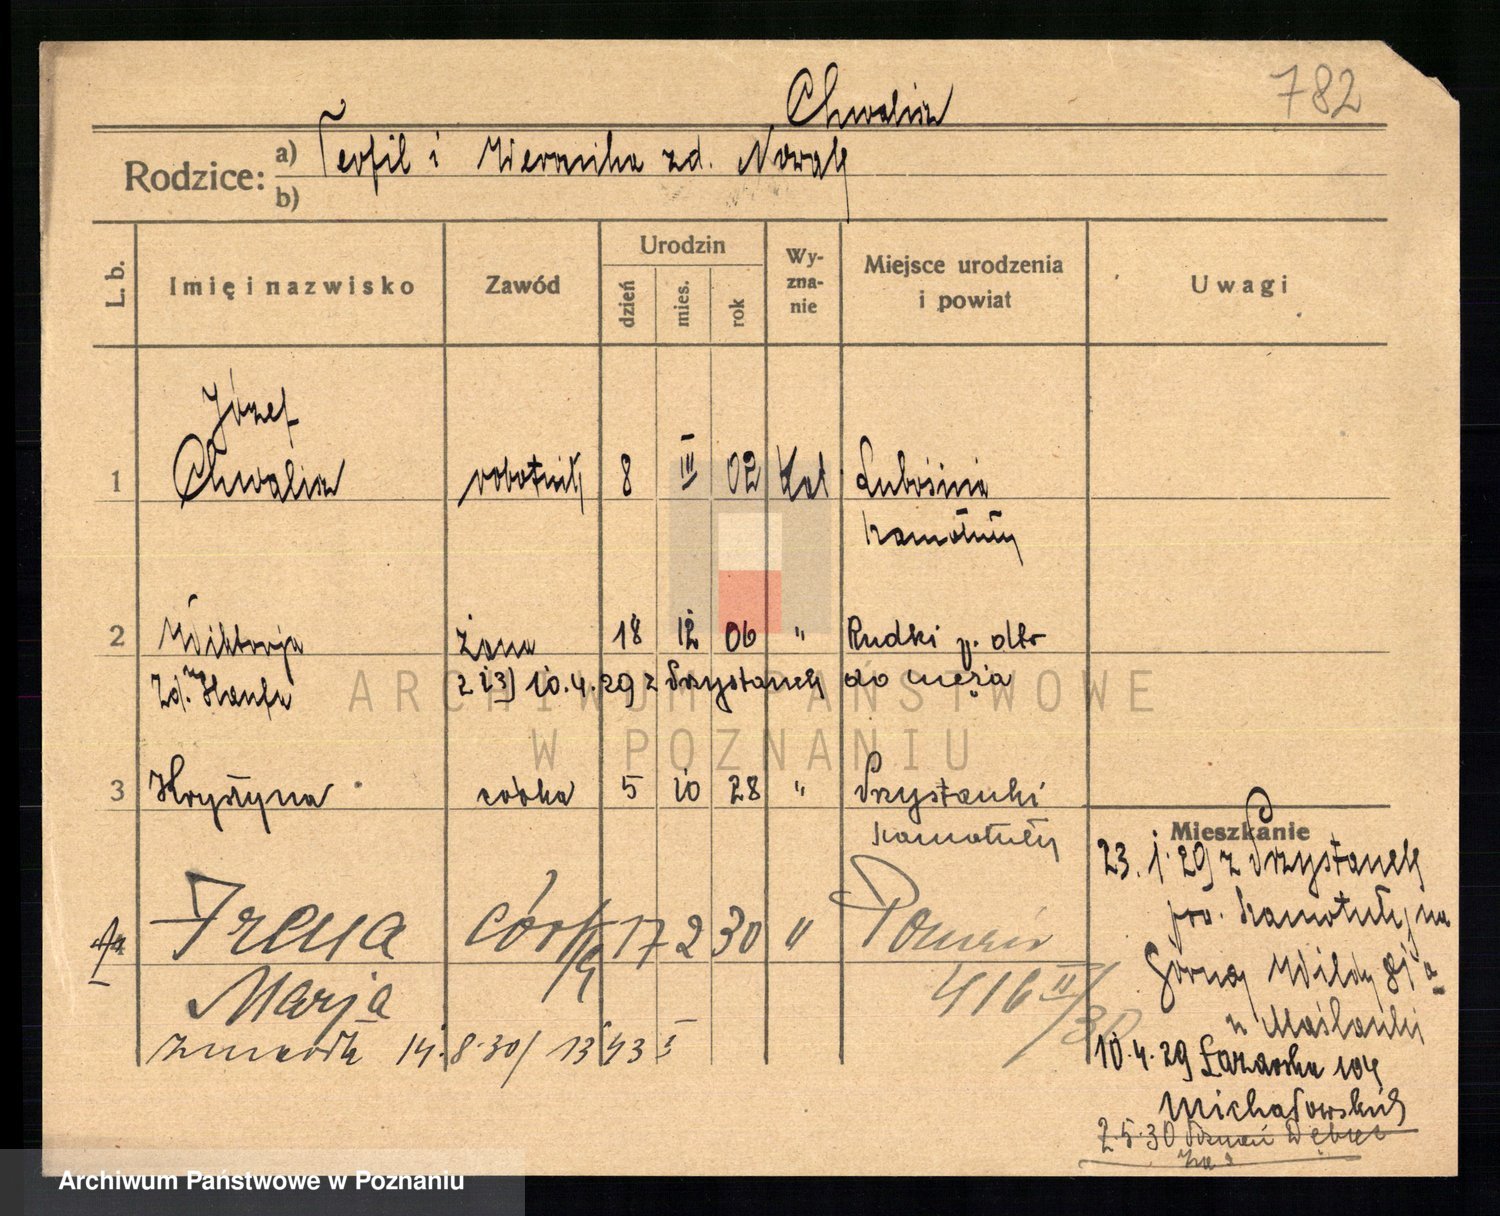 782
Chwalisz
Rodzice: a) Teofil i Weronika zd. Nowak
b)
L. b. Imię i nazwisko Zawód Urodzin dzień mies. rok Wy-zna-nie Miejsce urodzenia i powiat Uwagi
Józef
1 Chwalisz robotnik 8 III 02 kat Lubosina
Szamotuły
2 Wiktorja żona 18 12 06 " Rudki p. dto
zd. 2 i 3) 10.4.29 z Przystanek do męża
3 Krystyna córka 5 10 28 " Przystanki
Szamotuły
Mieszkanie
23. 1. 29 z Przystanek
pow. Szamotuły na
Górna Wilda 81 a
u Maślanki
4 Irena córka 17 2 30 " Poznań
Marja 416 II/30
zmarła 14.8.30/ 1343 I
10.4.29 Łazarska 10
Michałowskich
2.5.30 Poznań Dębiec
ARCHIWUM PAŃSTWOWE
W POZNANIU
Archiwum Państwowe w Poznaniu